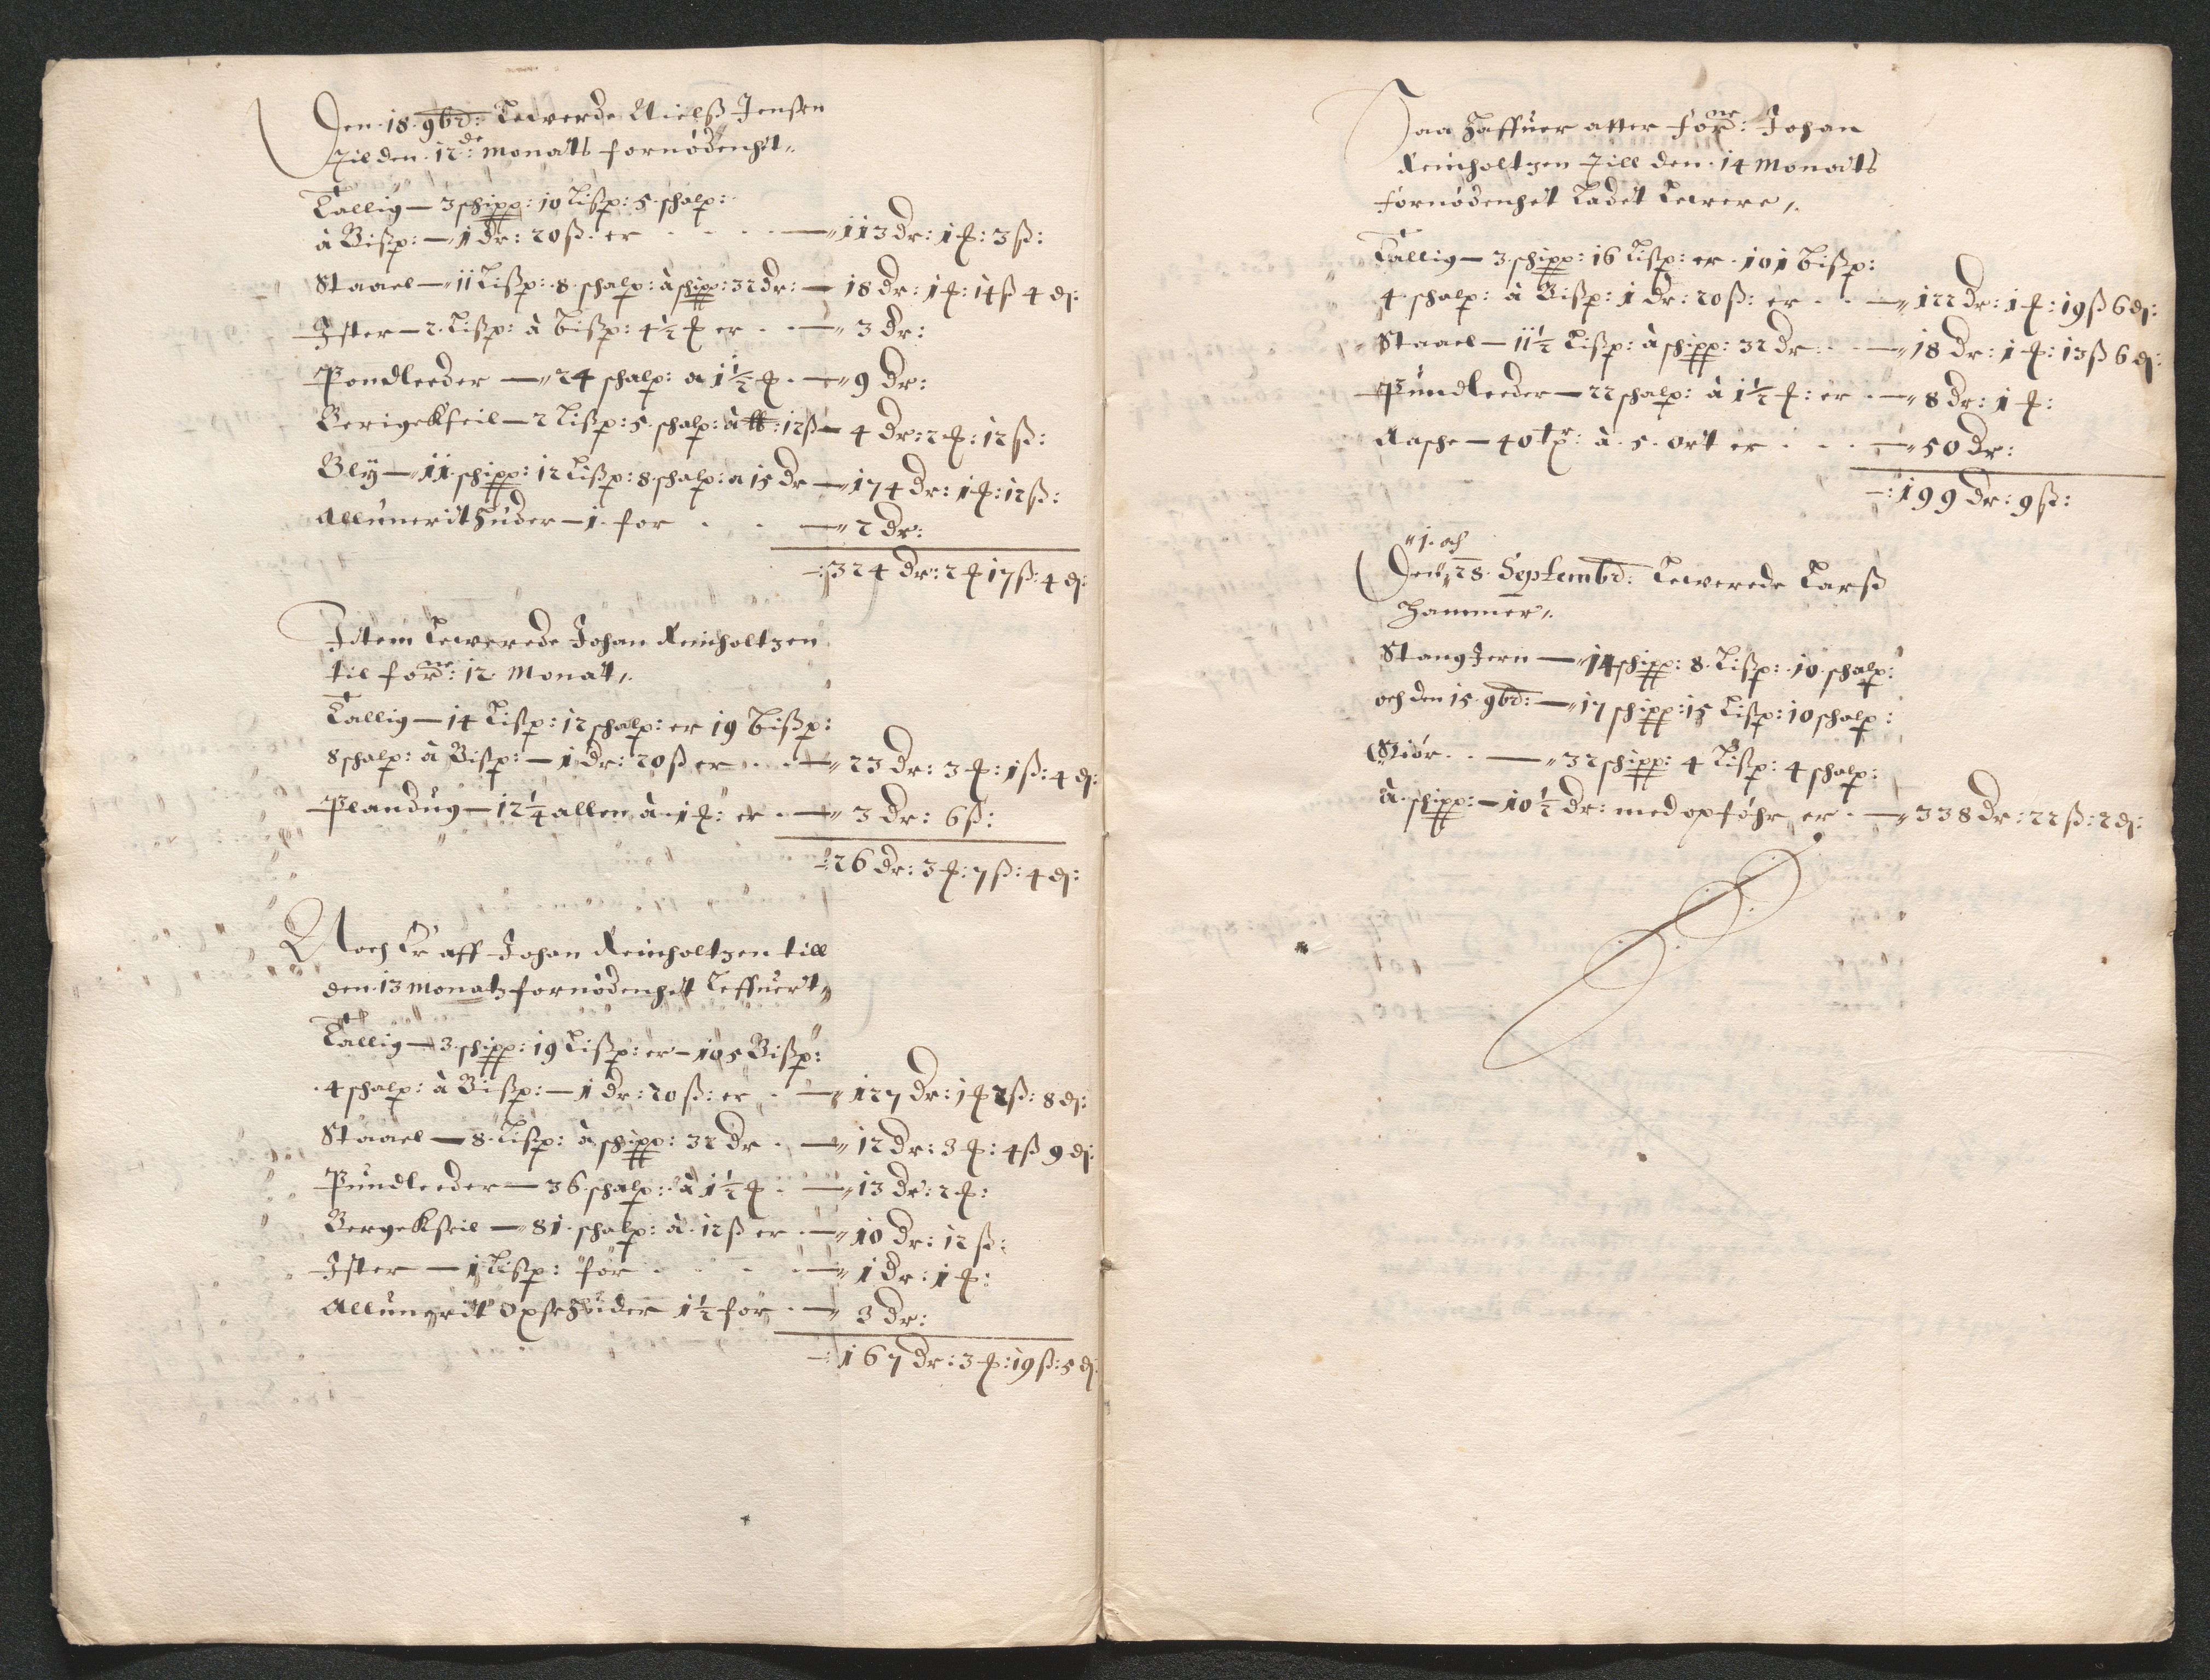 Den 18 9bd: Leverde Nielß Jenßen
Til den 12de: Monatß fornødenhet,,
Tallig — 3 schipp: 10 Lißp: 5 schalp:
à Bißp: — 1 dr: 20 ß: er — 113 dr: 1 ℔: 3 ß:
Staael — 11 Lißp: 8 schalp: à schipp: 32 dr: — 18 dr: 1 ℔: 14 ß 4 ₰:
Ister — 2 Lißp: à bißp: 4½ ℔ er — 3 dr:
Pondleeder — 24 schalp: a 1½ ℔ — 9 dr:
Berigekseil — 2 Lißp: 5 schalp: à ℔: 12 ß — 4 dr: 2 ℔: 12 ß:
Blÿ — 11 schipp: 12 Lißp: 8 schalp: a 15 dr — 174 dr: 1 ℔: 12 ß:
Allunerit Huder — 1 for — 2 dr:
—: 324 dr: 2 ℔ 17 ß: 4 ₰:
Item Leverede Johan Reinholtzen
til forne: 12 Monat,,
Tallig — 14 Lißp: 12 schalp: er 19 bißp:
8 schalp: à Bißp: — 1 dr: 20 ß er — 23 dr: 3 ℔: 1 ß: 4 ₰:
Plandug — 12¼ allen à 1 ℔: er — 3 dr: 6 ß:
—: 26 dr: 3 ℔: 7 ß: 4 ₰:
Noch Er aff Johan Reinholtzen till
den 13 Monatz fornødenhet Leffuert,,
Tallig — 3 schipp: 19 Lißp: er — 105 Bißp:
4 schalp: à Bißp: — 1 dr: 20 ß: er — 127 dr: 1 ℔ 2 ß: 8 ₰:
Staael — 8 Lißp: à schipp: 32 dr — 12 dr: 3 ℔: 4 ß 9 ₰:
Pundleeder — 36 schalp: à 1½ ℔ — 13 dr: 2 ℔:
Bergekseil — 81 schalp: à 12 ß er — 10 dr: 12 ß:
Ister — 1 Lißp: for — 1 dr: 1 ℔:
Allunerit Oxsehuder 1½ for — 3 dr:
—: 167 dr: 3 ℔: 19 ß: 5 ₰:
Saa Haffuer atter forne: Johan
Reinholtzen Till den 14 Monatß
fornødenhet Ladet Levere,,
Tallig — 3 schipp: 16 Lißp: er 101 bißp:
4 schalp: à Bißp: 1 dr: 20 ß: er — 122 dr: 1 ℔: 19 ß 6 ₰:
Staael — 11½ Lißp: à schipp: 32 dr — 18 dr: 1 ℔: 13 ß 6 ₰:
Pundleeder — 22 schalp: à 1½ ℔: er — 8 dr: 1 ℔:
Aasche — 40 tr: à 5 ort er — 50 dr:
—: 199 dr: 9 ß:
1. och
Den 28 Septembd: Leverede Larß
Hammer,,
Stang Jern — 14 schipp: 8 Lißp: 10 schalp:
och den 15 9bd: — 17 schipp: 15 Lißp: 10 schalp:
Giør — 32 schipp: 4 Lißp: 4 schalp:
à schipp: — 10½ dr: med opføhr, er — 338 dr: 22 ß: 2 ₰: